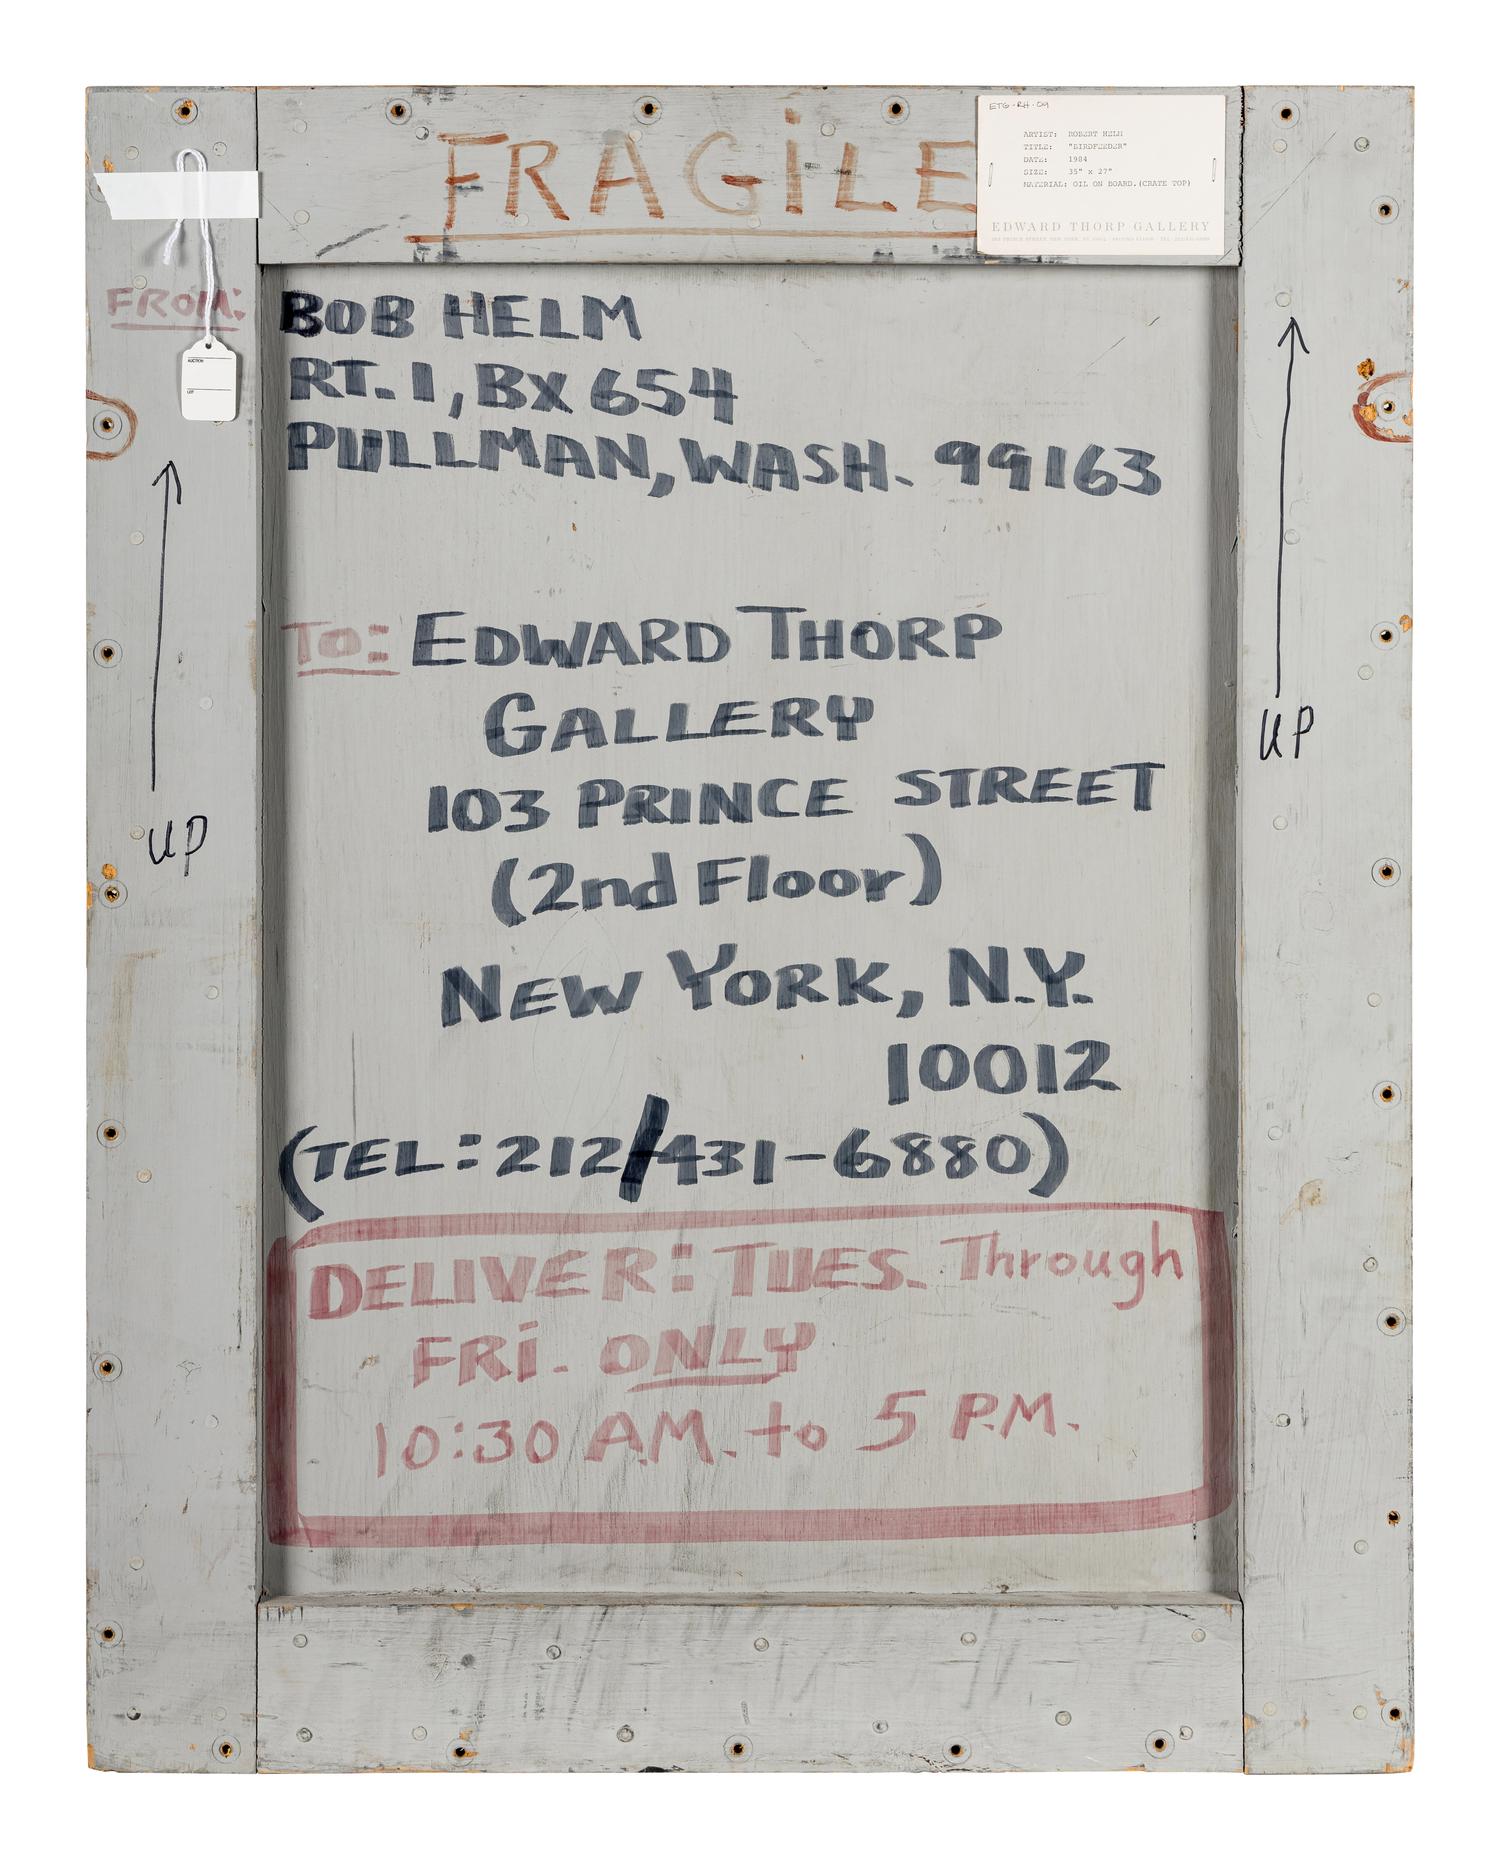 FRAGILE
ETG-RH-09
ARTIST: ROBERT HELM
TITLE: "BIRDFEEDER"
DATE: 1984
SIZE: 35" x 27"
MATERIAL: OIL ON BOARD.(CRATE TOP)
EDWARD THORP GALLERY
103 PRINCE STREET NEW YORK, NY 10012
FROM: BOB HELM
RT. 1, BX 654
PULLMAN, WASH. 99163
AUCTION
LOT
UP
UP
TO: EDWARD THORP
GALLERY
103 PRINCE STREET
(2nd Floor)
NEW YORK, N.Y.
10012
(TEL: 212/431-6880)
DELIVER: TUES. Through
FRi. ONLY
10:30 A.M. to 5 P.M.